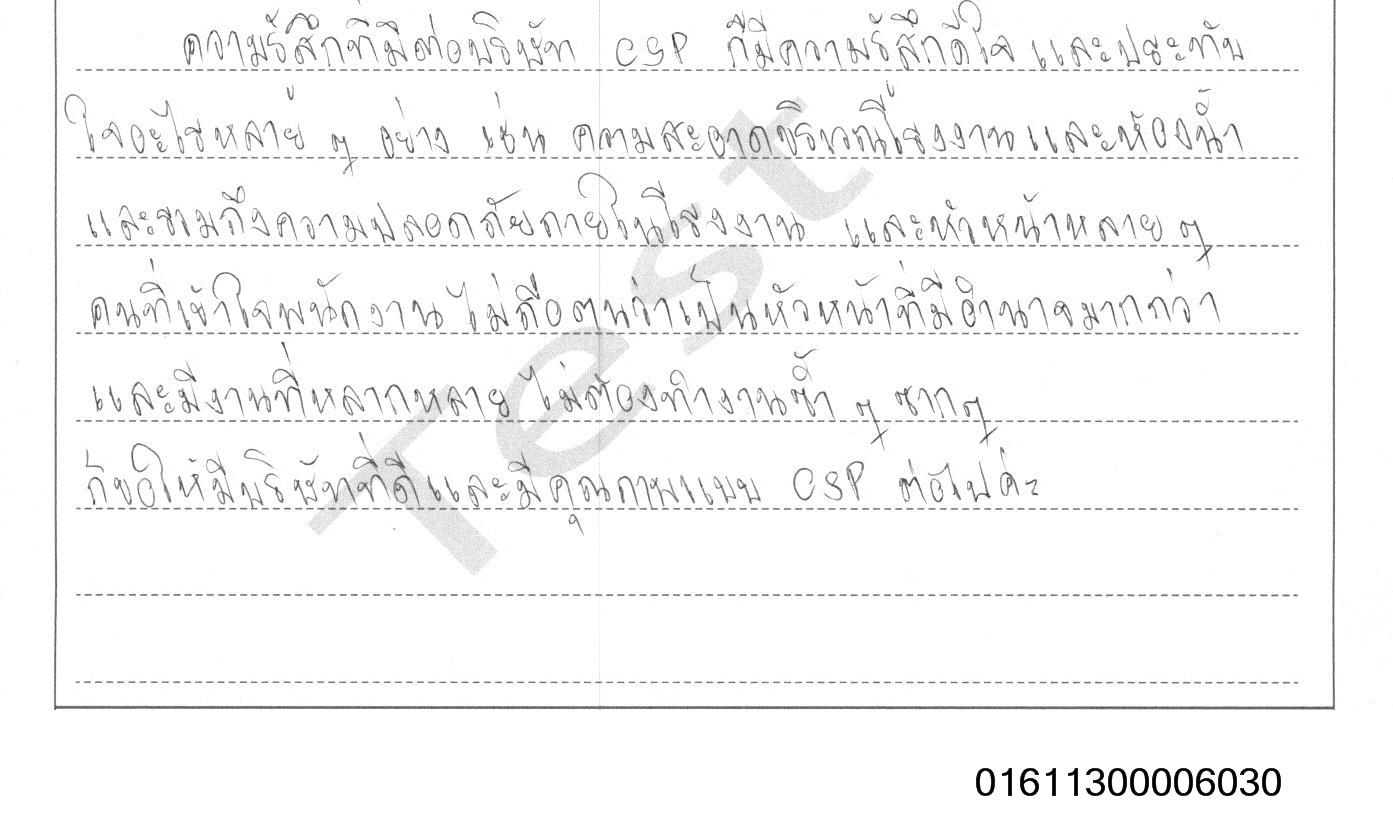 ความรู้สึกที่มีต่อบริษัท CSP ก็มีความรู้สึกดีใจ และประทับ
ใจอะไรหลายๆ อย่าง เช่น ความสะอาดบริเวณโรงงานและห้องน้ำ
และรวมถึงความปลอดภัยภายในโรงงาน และหัวหน้าหลายๆ
คนที่เข้าใจพนักงาน ไม่ถือตนว่าเป็นหัวหน้าที่มีอำนาจมากกว่า
และมีงานที่หลากหลาย ไม่ต้องทำงานซ้ำๆ ซากๆ
ก็ขอให้มีบริษัทที่ดีและมีคุณภาพแบบ CSP ต่อไปค่ะ
Test
01611300006030